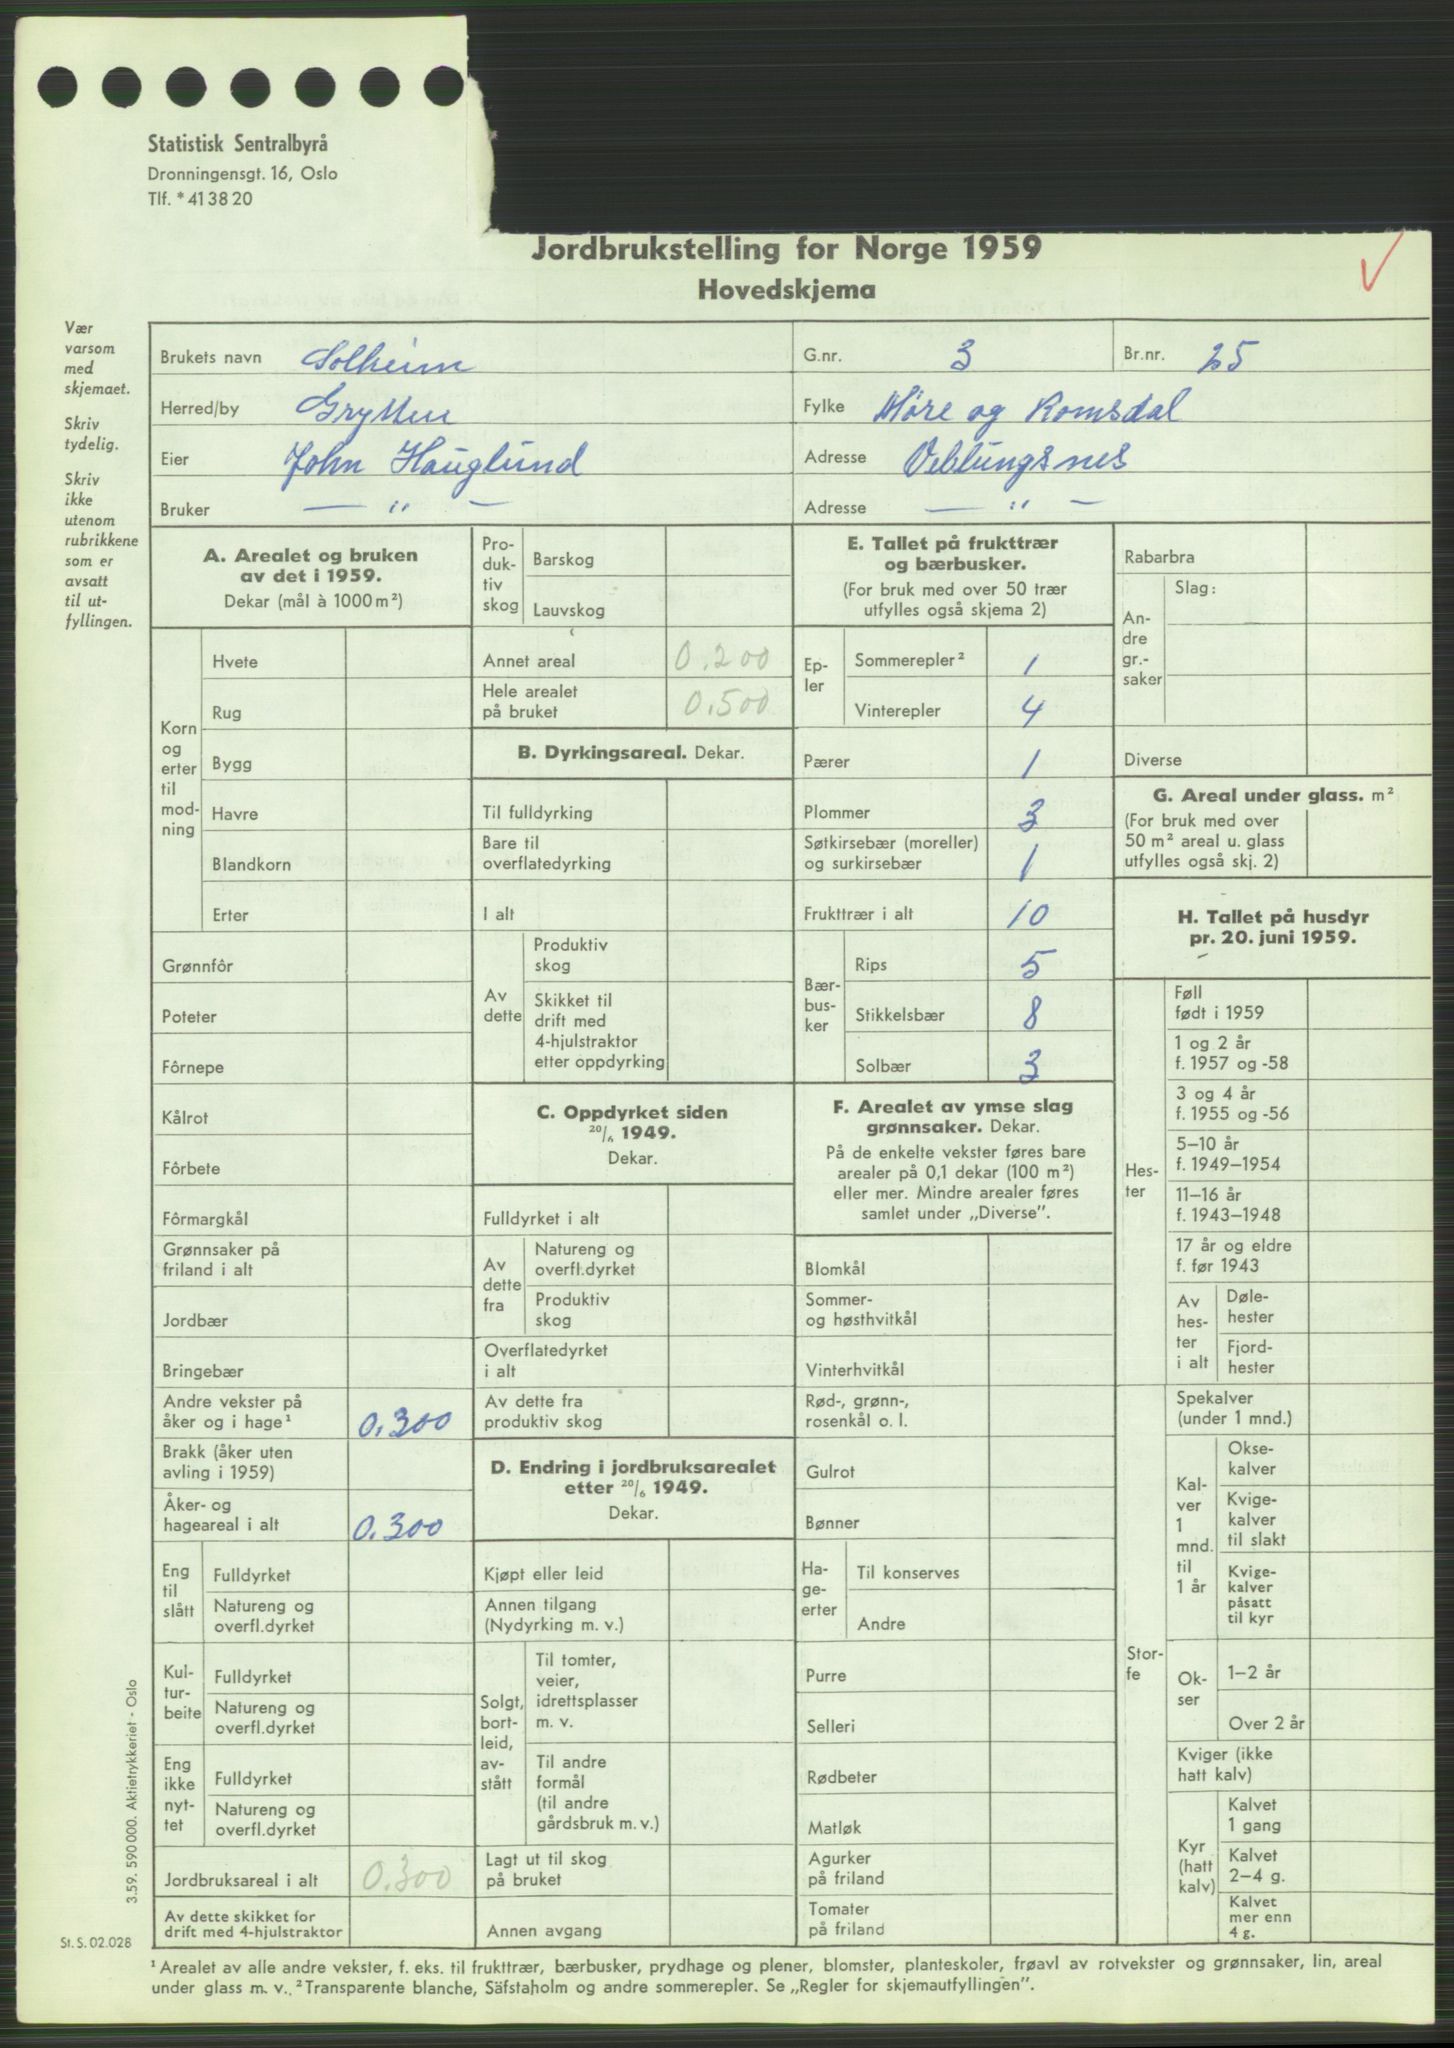 Statistisk Sentralbyrå
Dronningensgt. 16, Oslo
Tlf. * 41 38 20
Jordbrukstelling for Norge 1959
Hovedskjema
Vær
varsom
med
skjemaet.
Skriv
tydelig.
Skriv
ikke
utenom
rubrikkene
som er
avsatt
til ut-
fyllingen.
Brukets navn Solheim G.nr. 3 Br.nr. 25
Herred/by Grytten Fylke Møre og Romsdal
Eier John Hauglund Adresse Veblungsnes
Bruker — " — Adresse — " —
A. Arealet og bruken
av det i 1959.
Dekar (mål à 1000 m²)
Korn
og
erter
til
mod-
ning
Hvete
Rug
Bygg
Havre
Blandkorn
Erter
Grønnfôr
Poteter
Fôrnepe
Kålrot
Fôrbete
Fôrmargkål
Grønnsaker på
friland i alt
Jordbær
Bringebær
Andre vekster på
åker og i hage¹ 0.300
Brakk (åker uten
avling i 1959)
Åker- og
hageareal i alt 0.300
Eng
til
slått
Fulldyrket
Natureng og
overfl.dyrket
Kul-
tur-
beite
Fulldyrket
Natureng og
overfl.dyrket
Eng
ikke
nyt-
tet
Fulldyrket
Natureng og
overfl.dyrket
Jordbruksareal i alt 0.300
Av dette skikket for
drift med 4-hjulstraktor
Pro-
duk-
tiv
skog
Barskog
Lauvskog
Annet areal 0.200
Hele arealet
på bruket 0.500
B. Dyrkingsareal. Dekar.
Til fulldyrking
Bare til
overflatedyrking
I alt
Av
dette
Produktiv
skog
Skikket til
drift med
4-hjulstraktor
etter oppdyrking
C. Oppdyrket siden
20/6 1949.
Dekar.
Fulldyrket i alt
Av
dette
fra
Natureng og
overfl.dyrket
Produktiv
skog
Overflatedyrket
i alt
Av dette fra
produktiv skog
D. Endring i jordbruksarealet
etter 20/6 1949.
Dekar.
Kjøpt eller leid
Annen tilgang
(Nydyrking m. v.)
Solgt,
bort-
leid,
av-
stått
Til tomter,
veier,
idrettsplasser
m. v.
Til andre
formål
(til andre
gårdsbruk m. v.)
Lagt ut til skog
på bruket
Annen avgang
E. Tallet på frukttrær
og bærbusker.
(For bruk med over 50 trær
utfylles også skjema 2)
Ep-
ler
Sommerepler² 1
Vinterepler 4
Pærer 1
Plommer 3
Søtkirsebær (moreller)
og surkirsebær 1
Frukttrær i alt 10
Bær-
bus-
ker
Rips 5
Stikkelsbær 8
Solbær 3
F. Arealet av ymse slag
grønnsaker. Dekar.
På de enkelte vekster føres bare
arealer på 0,1 dekar (100 m²)
eller mer. Mindre arealer føres
samlet under „Diverse”.
Blomkål
Sommer-
og høsthvitkål
Vinterhvitkål
Rød-, grønn-,
rosenkål o. l.
Gulrot
Bønner
Ha-
ge-
erter
Til konserves
Andre
Purre
Selleri
Rødbeter
Matløk
Agurker
på friland
Tomater
på friland
Rabarbra
An-
dre
gr.-
saker
Slag:
Diverse
G. Areal under glass. m²
(For bruk med over
50 m² areal u. glass
utfylles også skj. 2)
H. Tallet på husdyr
pr. 20. juni 1959.
Hes-
ter
Føll
født i 1959
1 og 2 år
f. 1957 og -58
3 og 4 år
f. 1955 og -56
5–10 år
f. 1949–1954
11–16 år
f. 1943–1948
17 år og eldre
f. før 1943
Av
hes-
ter
i alt
Døle-
hester
Fjord-
hester
Stor-
fe
Spekalver
(under 1 mnd.)
Kal-
ver
1
mnd.
til
1 år
Okse-
kalver
Kvige-
kalver
til slakt
Kvige-
kalver
påsatt
til kyr
Ok-
ser
1–2 år
Over 2 år
Kviger (ikke
hatt kalv)
Kyr
(hatt
kalv)
Kalvet
1 gang
Kalvet
2–4 g.
Kalvet
mer enn
4 g.
3.59. 590 000. Aktietrykkeriet - Oslo
St. S. 02.028
¹ Arealet av alle andre vekster, f. eks. til frukttrær, bærbusker, prydhage og plener, blomster, planteskoler, frøavl av rotvekster og grønnsaker, lin, areal
under glass m. v. ² Transparente blanche, Säfstaholm og andre sommerepler. Se „Regler for skjemautfyllingen”.